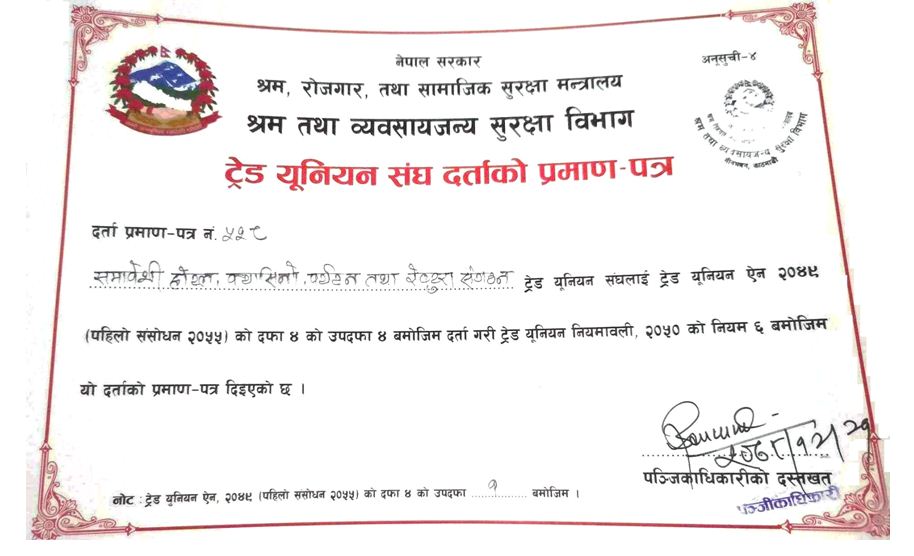 नेपाल सरकार
अनुसूची-४
श्रम, रोजगार, तथा सामाजिक सुरक्षा मन्त्रालय
श्रम तथा व्यवसायजन्य सुरक्षा विभाग
श्रम तथा व्यवसायजन्य सुरक्षा विभाग
ट्रेड यूनियन संघ दर्ताको प्रमाण-पत्र
दर्ता प्रमाण-पत्र नं. ५२९
समावेशी होटल, क्यासिनो, पर्यटन तथा रेष्टुरा संगठन ट्रेड यूनियन संघलाई ट्रेड यूनियन ऐन २०४९
(पहिलो संसोधन २०५५) को दफा ४ को उपदफा ४ बमोजिम दर्ता गरी ट्रेड यूनियन नियमावली, २०५० को नियम ६ बमोजिम
यो दर्ताको प्रमाण-पत्र दिइएको छ ।
पञ्जिकाधिकारीको दस्तखत
पञ्जीकाधिकारी
नोट : ट्रेड यूनियन ऐन, २०४९ (पहिलो संसोधन २०५५) को दफा ४ को उपदफा १ बमोजिम ।